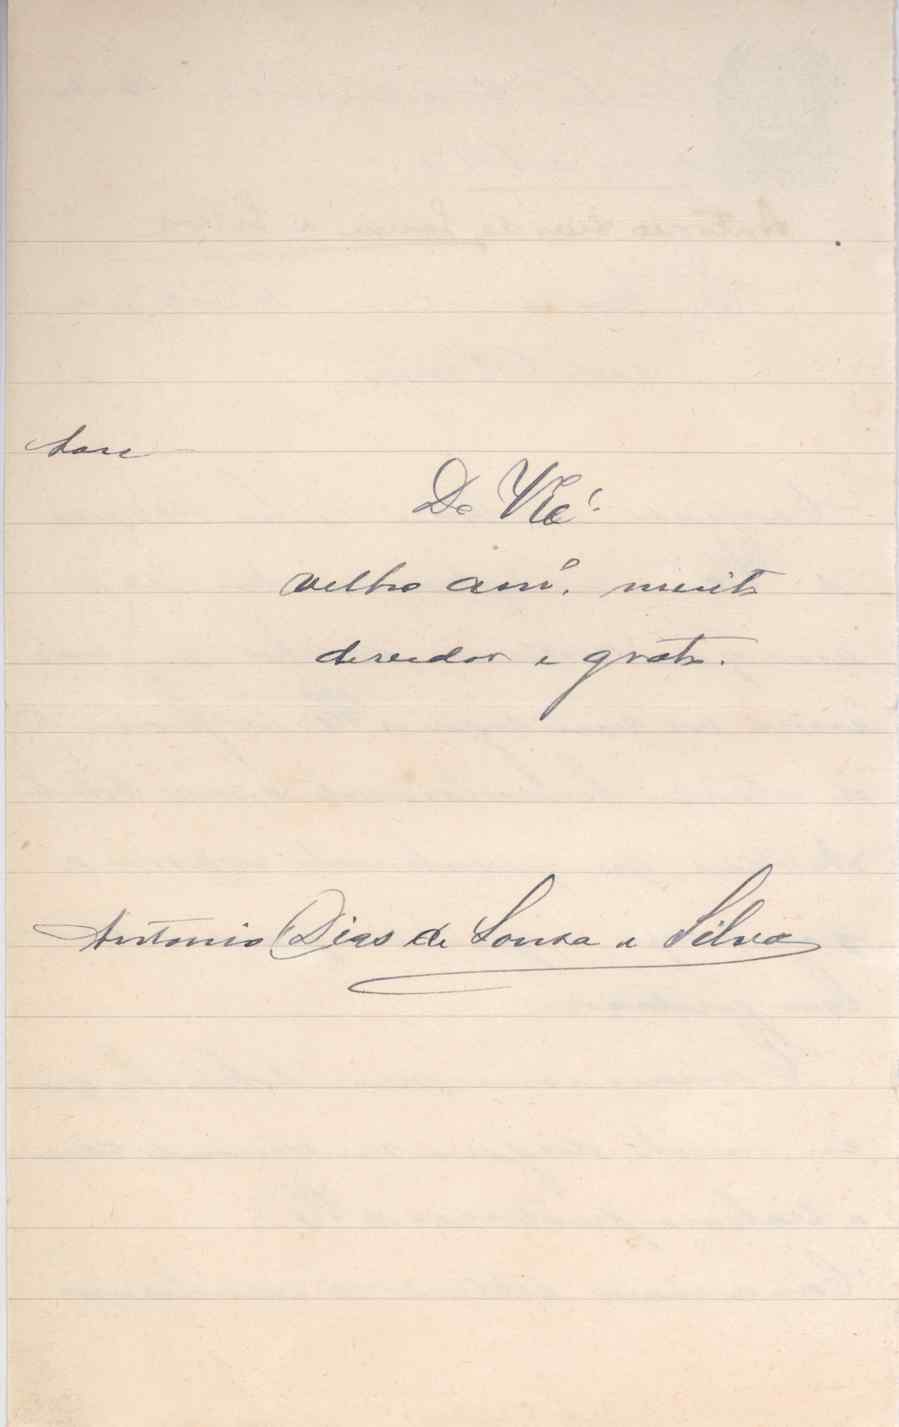 De V. Ex.ª
velho am.º muito
devedor e grato.
Antonio Dias de Souza e Silva